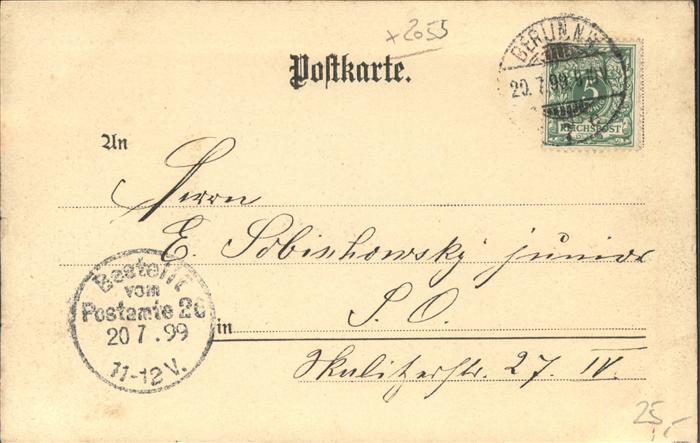 x2055
Postkarte.
BERLIN N.
20.7.99.
5
REICHSPOST
An
Herrn
E. Sobischowsky junior
Bestellt
vom
Postamte 26
20 7.99
11-12 V.
S. O.
in
Skulitzerstr. 27. IV.
25,-